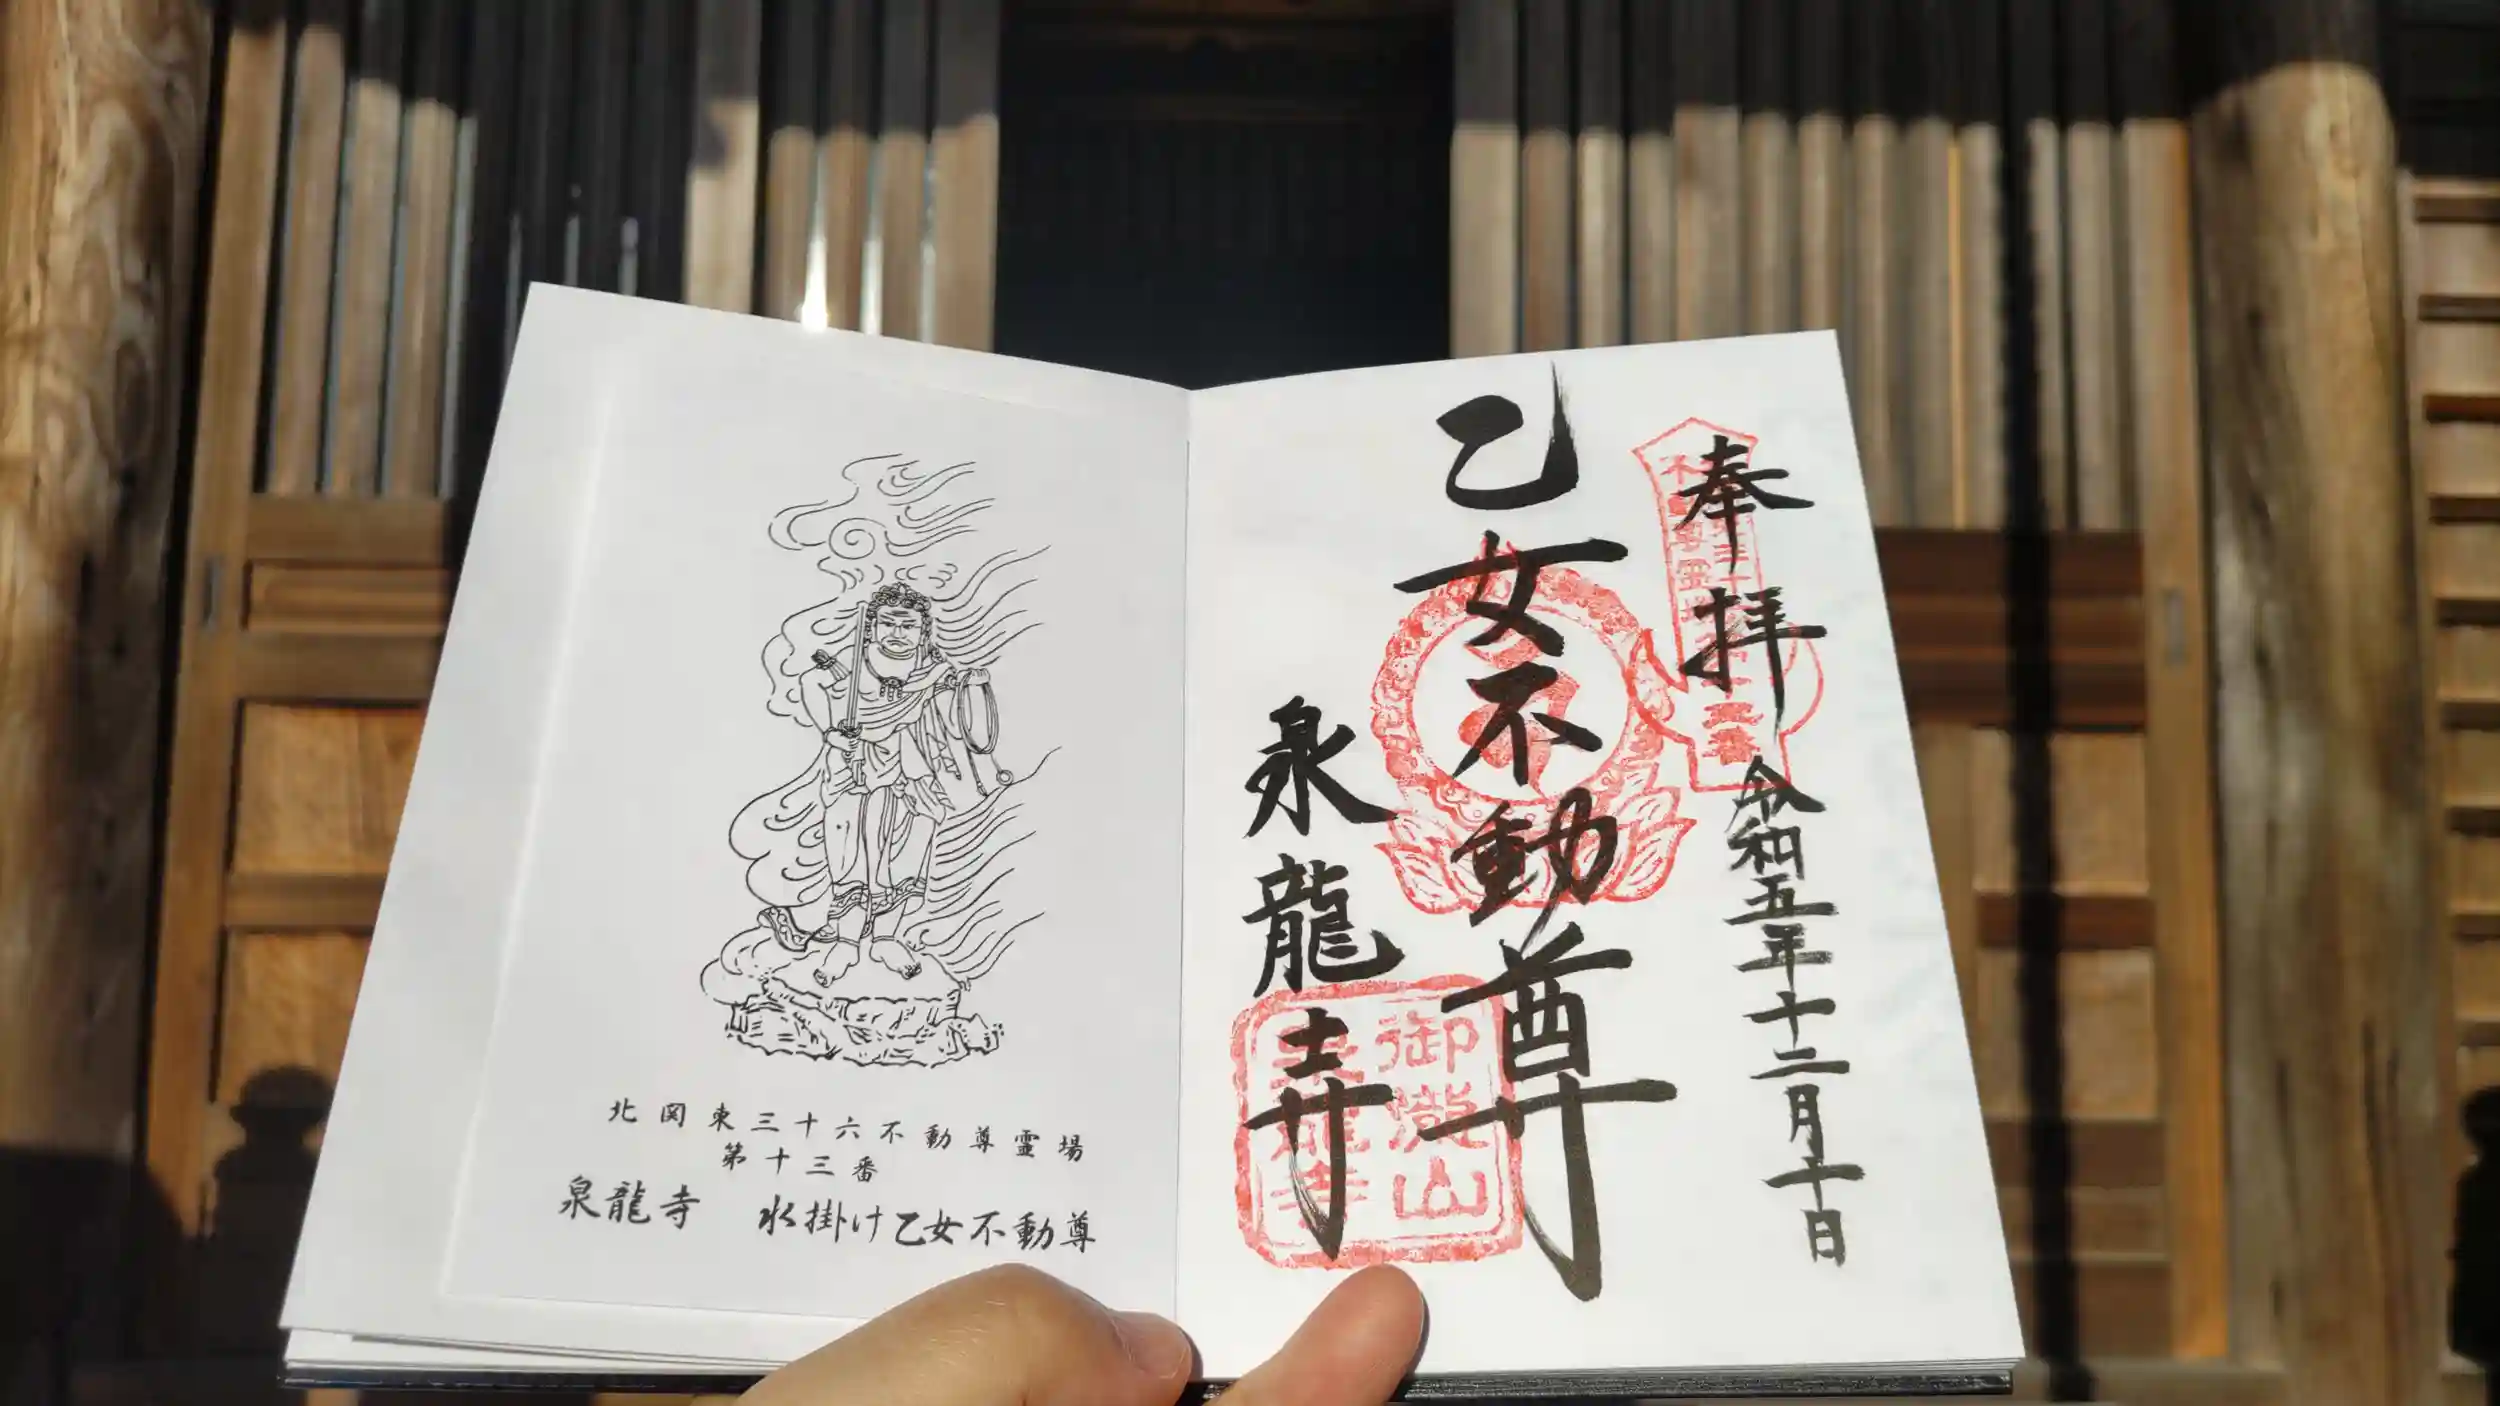 奉拝
令和五年十二月十日
乙女不動尊
泉龍寺
御瀧山
泉龍寺
北関東三十六不動尊霊場
第十三番
泉龍寺 水掛け乙女不動尊